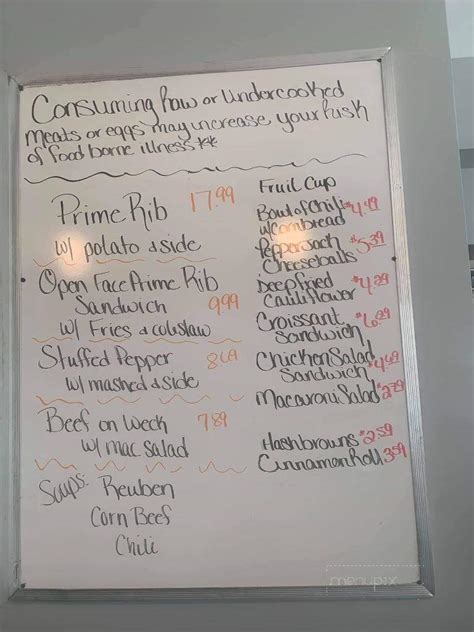 Consuming Raw or Undercooked
Meats or eggs may increase your Risk
of food borne illness **
Prime Rib 17.99
w/ potato & side
Open Face Prime Rib
Sandwich 9.99
w/ Fries & coleslaw
Stuffed Pepper 8.69
w/ mashed & side
Beef on Weck 7.89
w/ mac salad
Soups: Reuben
Corn Beef
Chili
Fruit Cup
Bowl of Chili $4.49
w/ Cornbread
Pepper Jack $5.39
Cheeseballs
Deep Fried $4.29
Cauliflower
Croissant $6.29
Sandwich
Chicken Salad $4.69
Sandwich
Macaroni Salad $2.79
Hashbrowns $2.59
Cinnamon Roll 3.59
menupix